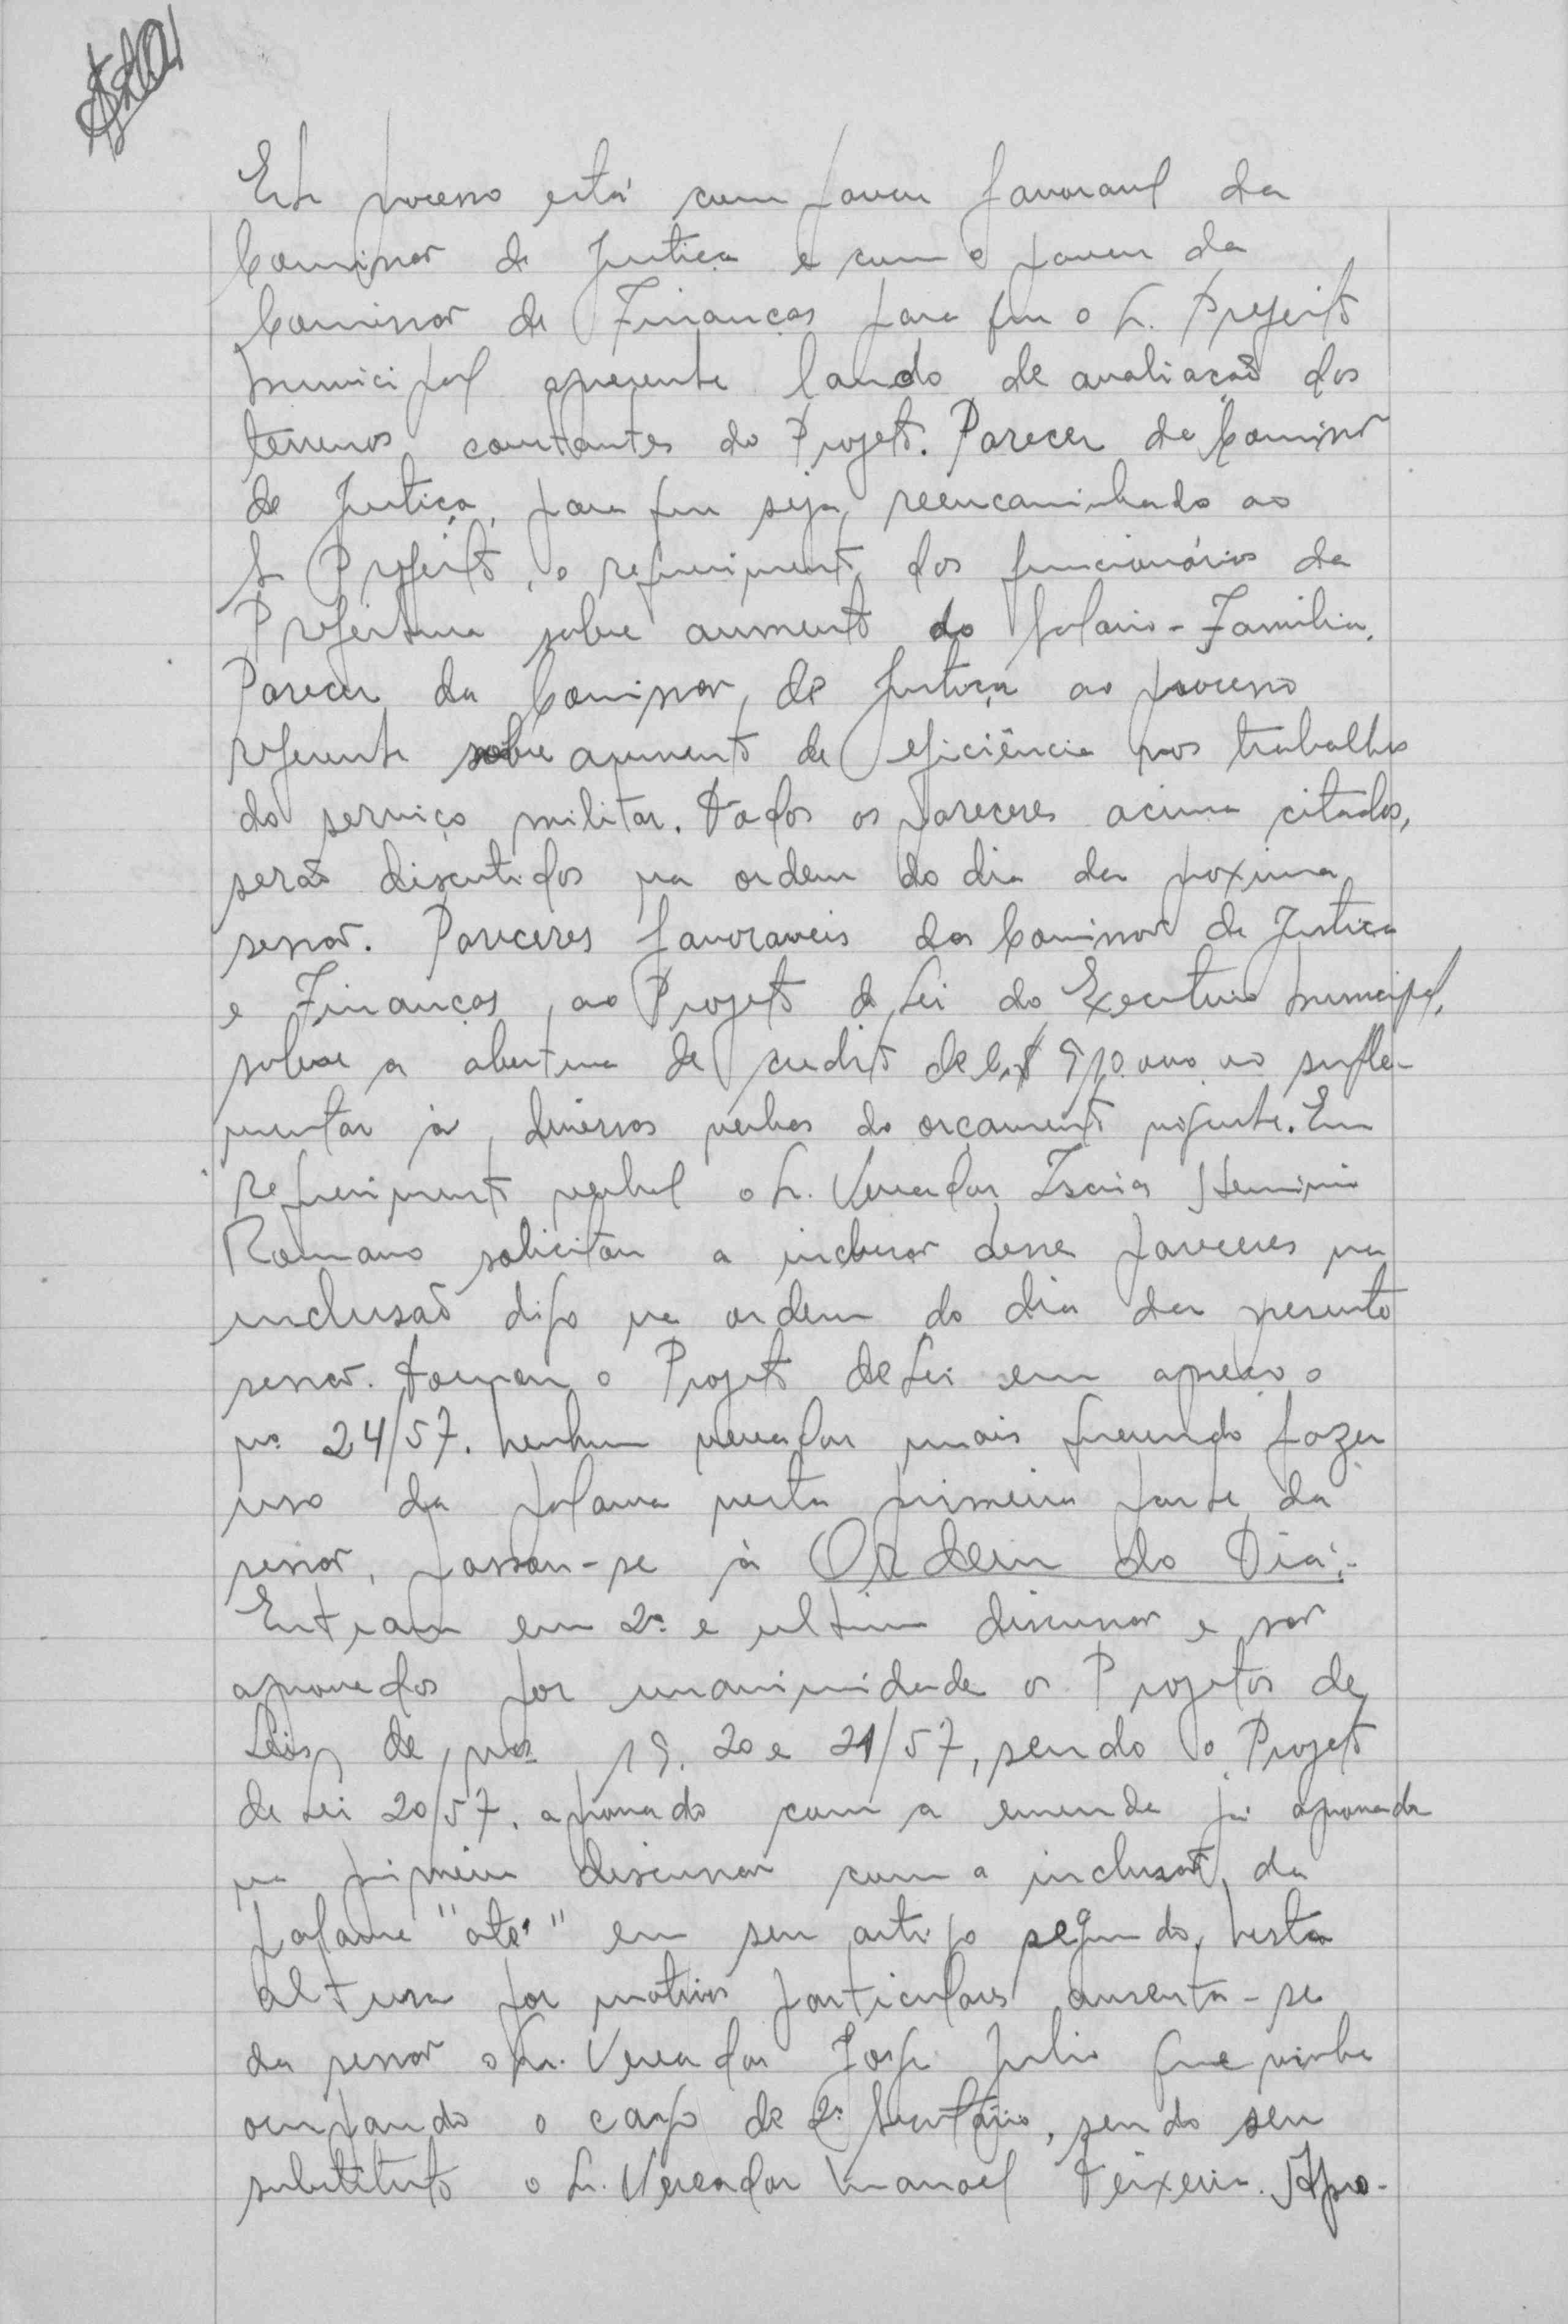 Este processo está com parecer favoravel da
Comissão de Justiça e com o parecer da
Comissão de Finanças para que o Sr. Prefeito
Municipal apresente laudo de avaliação dos
terrenos constantes do Projeto. Parecer da Comissão
de Justiça, para que seja reencaminhado ao
Sr Prefeito, o requerimento dos funcionários da
Prefeitura sobre aumento do Salario-Familia.
Parecer da Comissão de Justiça ao processo
referente sobre aumento de eficiência nos trabalhos
do serviço militar. Todos os pareceres acima citados,
serão discutidos na ordem do dia da proxima
sessão. Pareceres favoraveis das Comissão de Justiça
e Finanças, ao Projeto de Lei do Executivo Municipal,
sobre a abertura de credito de Cr$ suple-
mentar à diversas verbas do orçamento vigente. Em
requerimento verbal o Sr. Vereador Isaias Herminio
Romano solicitou a inclusão desse pareceres na
inclusão digo na ordem do dia da presente
sessão. Tomou o Projeto de Lei em apreço o
nº 24/57. Nenhum vereador mais querendo fazer
uso da palavra nesta primeira parte da
sessão, passou-se à Ordem do Dia:-
Entram em 2ª e ultima discussão e são
aprovados por unanimidade os Projetos de
Leis de nos 19, 20 e 21/57, sendo o Projeto
de Lei 20/57, aprovado com a emenda já aprovada
na primeira discussão com a inclusão da
palavra "até" em seu artigo segundo. Nesta
altura por motivos particulares ausenta-se
da sessão o Sr. Vereador José Julio que vinha
ocupando o cargo de 2º Secretário, sendo seu
substituto o Sr. Vereador Manoel Teixeira. Apro-